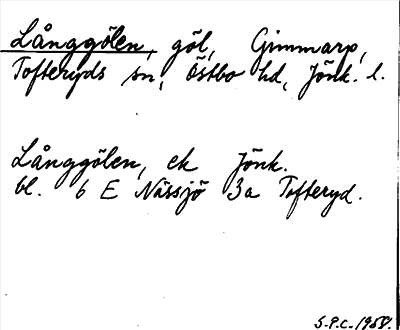 Långgölen, göl, Gimmarp,
Tofteryds sn, Östbo hd, Jönk. l.
Långgölen, ek Jönk.
bl. 6 E Nässjö 3a Tofteryd.
S.P.C.